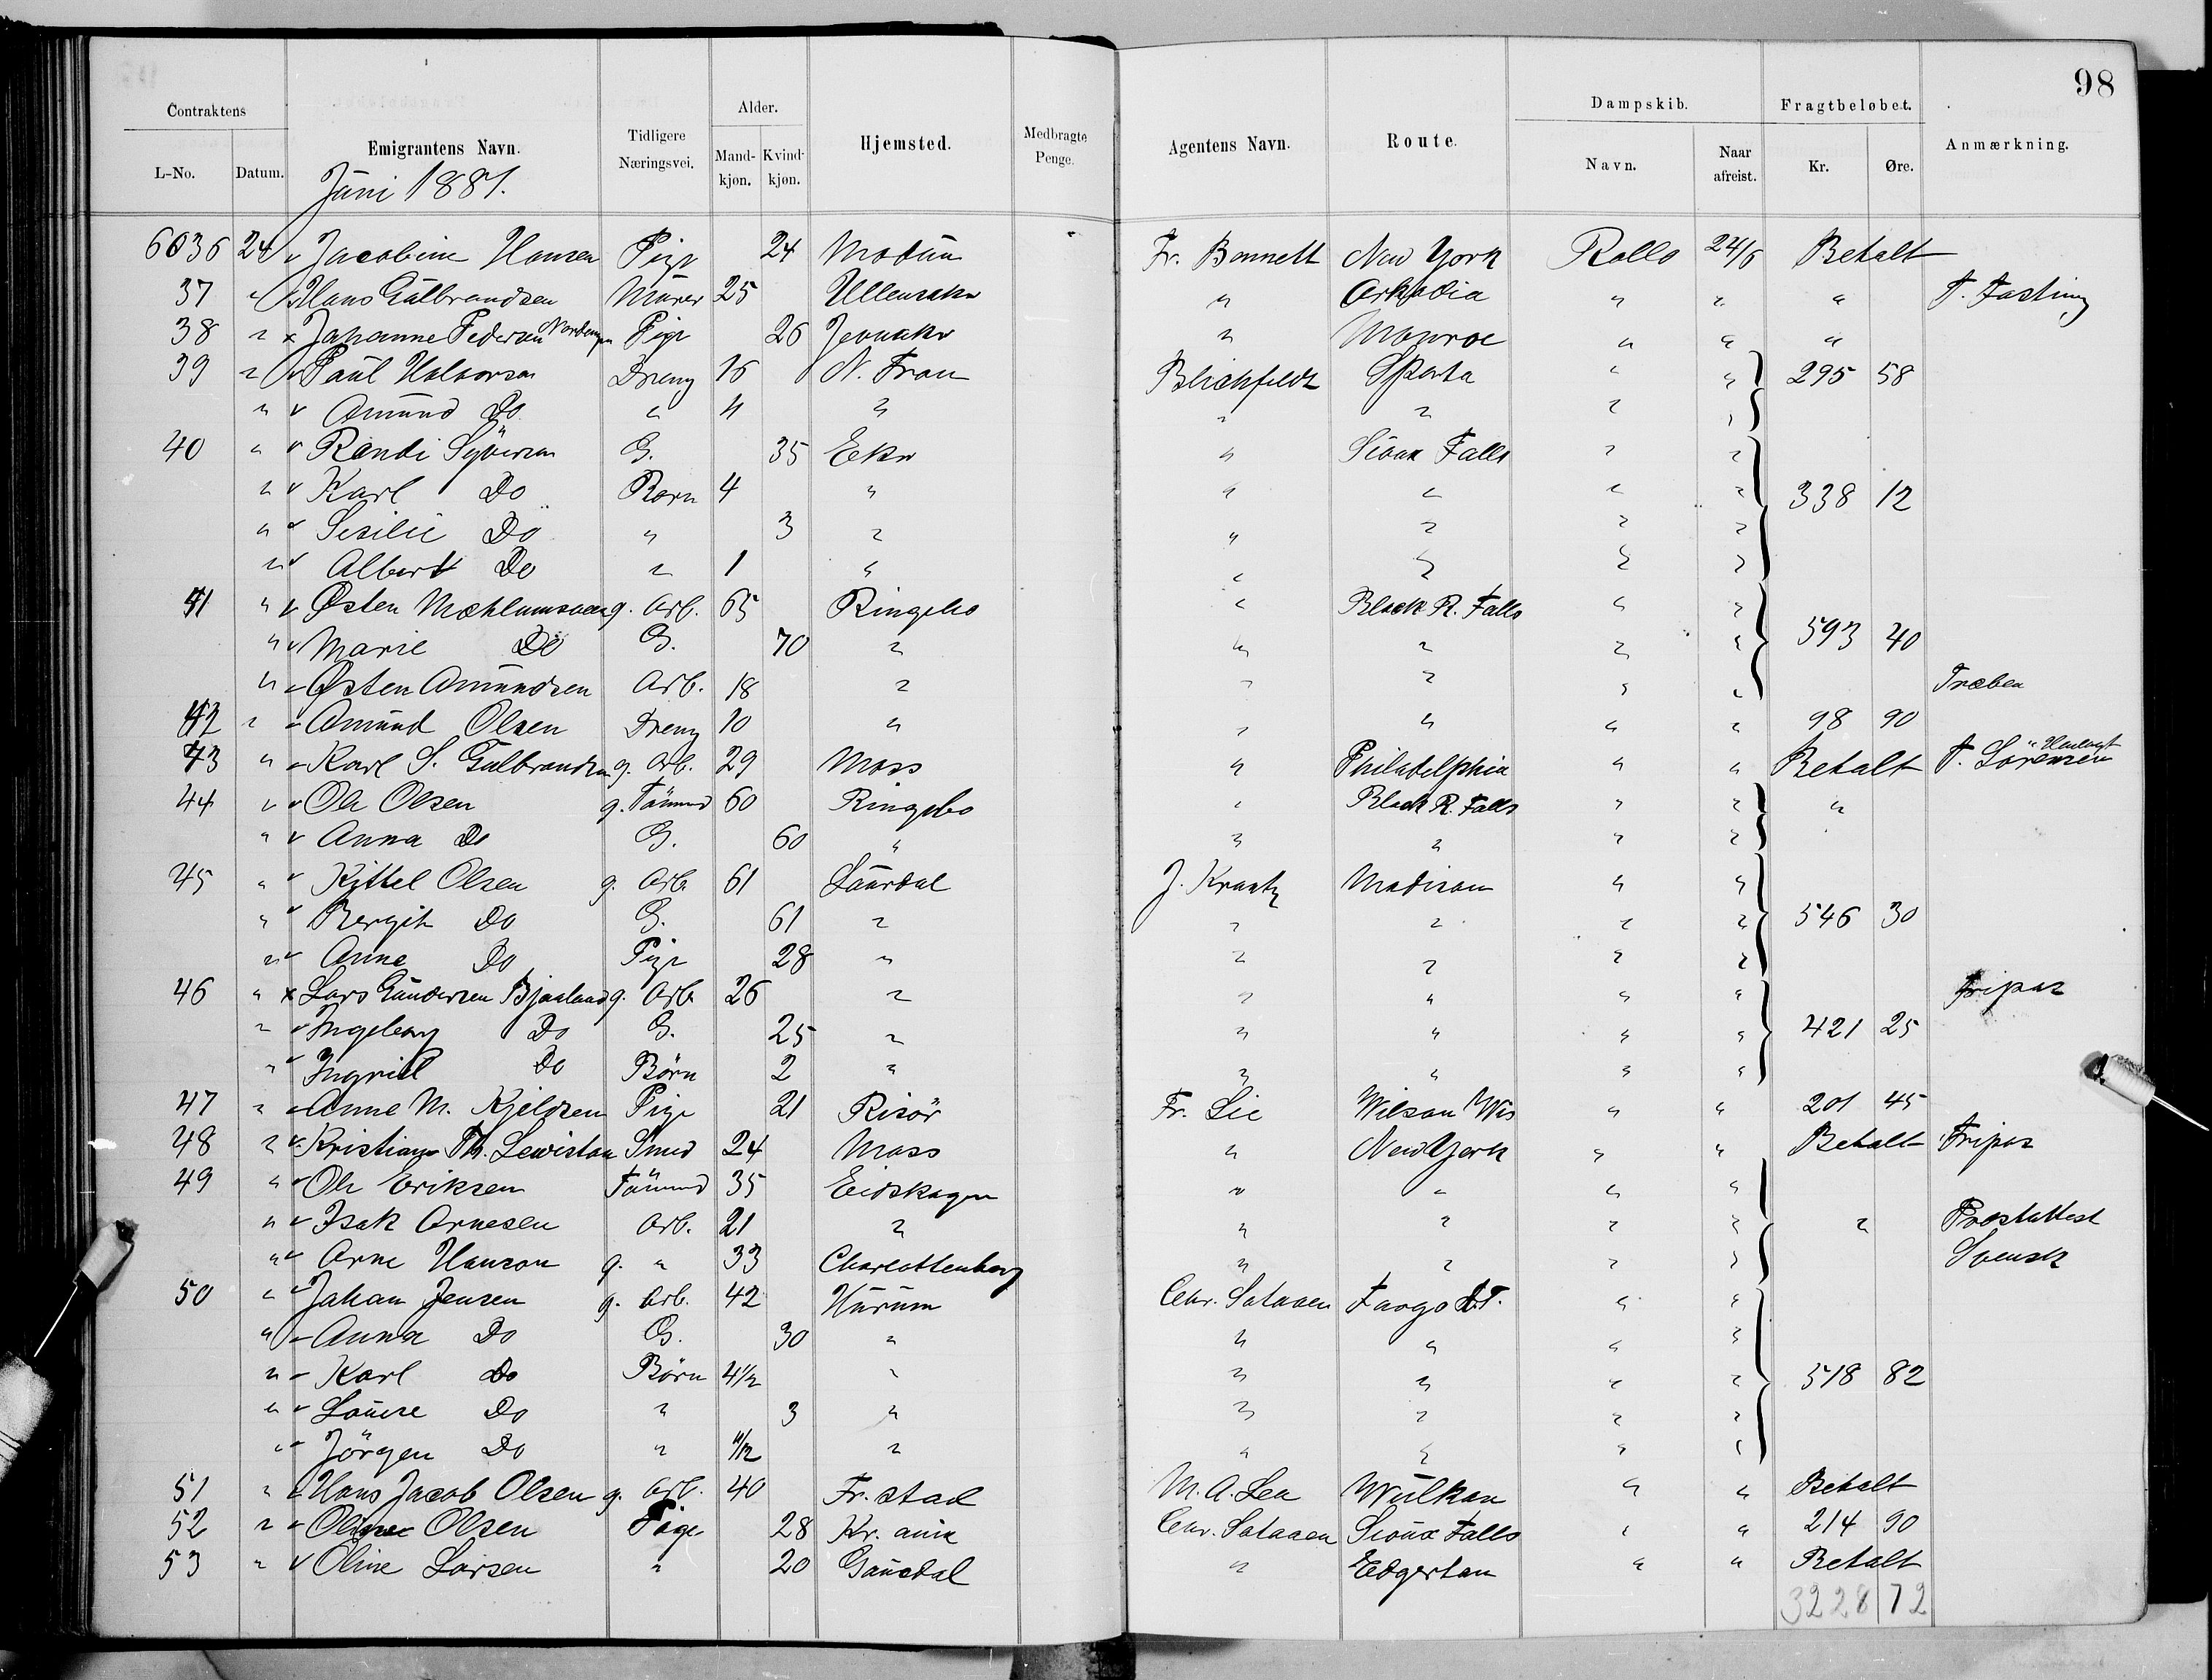 98
Contraktens Emigrantens Navn. Tidligere Næringsvei. Alder. Hjemsted. Medbragte Penge. Agentens Navn. Route. Dampskib. Fragtbeløbet. Anmærkning.
L-No. Datum. Mandkjøn. Kvindkjøn. Navn. Naar afreist. Kr. Øre.
Juni 1881.
6036 24 v Jacobine Hansen Pige 24 Modum Fr. Bennett New York Rollo 24/6 Betalt
37 " v Hans Gulbrandsen Murer 25 Ullensaker " Arkadia " " " T. Fasting
38 " x Johanne Pedersen Nordengen Pige 26 Jevnaker " Monroe " " "
39 " v Paul Halvorsen Dreng 16 N. Fron Blichfeldt Sparta " " 295 58
" v Amund Do " 11 " " " " "
40 " v Randi Syversen G. 35 Eker " Sioux Falls " "
" v Karl Do Barn 4 " " " " " 338 12
" v Sesilie Do " 3 " " " " "
" v Albert Do " 1 " " " " "
41 " v Østen Mæhlumsveen g. Arb. 65 Ringebo " Black R. Falls " "
" v Marie Do G. 70 " " " " " 593 40
" v Østen Amundsen Arb. 18 " " " " " Træben
42 " v Amund Olsen Dreng 10 " " " " " 98 90
43 " v Karl S. Gulbrandsen g. Arb. 29 Moss " Philadelphia " " Betalt T. Sørensen
44 " v Ole Olsen g. Tömmd 60 Ringebo " Black R. Falls " " "
" v Anna Do G. 60 " " " " "
45 " v Kittel Olsen g. Arb. 61 Laurdal J. Krantz Madison " "
" v Bergit Do G. 61 " " " " " 546 30
" v Anne Do Pige 28 " " " " "
46 " x Lars Gundersen Bjaaland g. Arb. 26 " " " " " Fripas
" v Ingeborg Do G. 25 " " " " " 421 25
" v Ingrid Do Börn 2 " " " " "
47 " v Anne M. Kjeldsen Pige 21 Risör Fr. Lie Wilson Wis " " 201 45
48 " v Kristian Th. Lewiston Smed 24 Moss " New York " " Betalt Fripas
49 " v Ole Eriksen Tömmd 35 Eidskogen " " " "
" v Isak Arnesen Arb. 21 " " " " " " Prestattest
" v Arne Hanson g. " 33 Charlottenberg " " " " Svensk
50 " v Johan Jensen g. Arb. 42 Hurum Chr. Sataaen Fargo D.T. " "
" v Anna Do G. 30 " " " " "
" v Karl Do Börn 4 1/2 " " " " " 518 82
" v Louise Do " 3 " " " " "
" v Jörgen Do " 11/12 " " " " "
51 " v Hans Jacob Olsen g. Arb. 40 Fr. stad M. A. Lea Wulkan " " Betalt
52 " v Oline Olsen Pige 28 Kr. ania Chr. Sataaen Sioux Falls " " 214 90
53 " v Oline Larsen " 20 Gausdal " Edgerton " " Betalt
3228 72